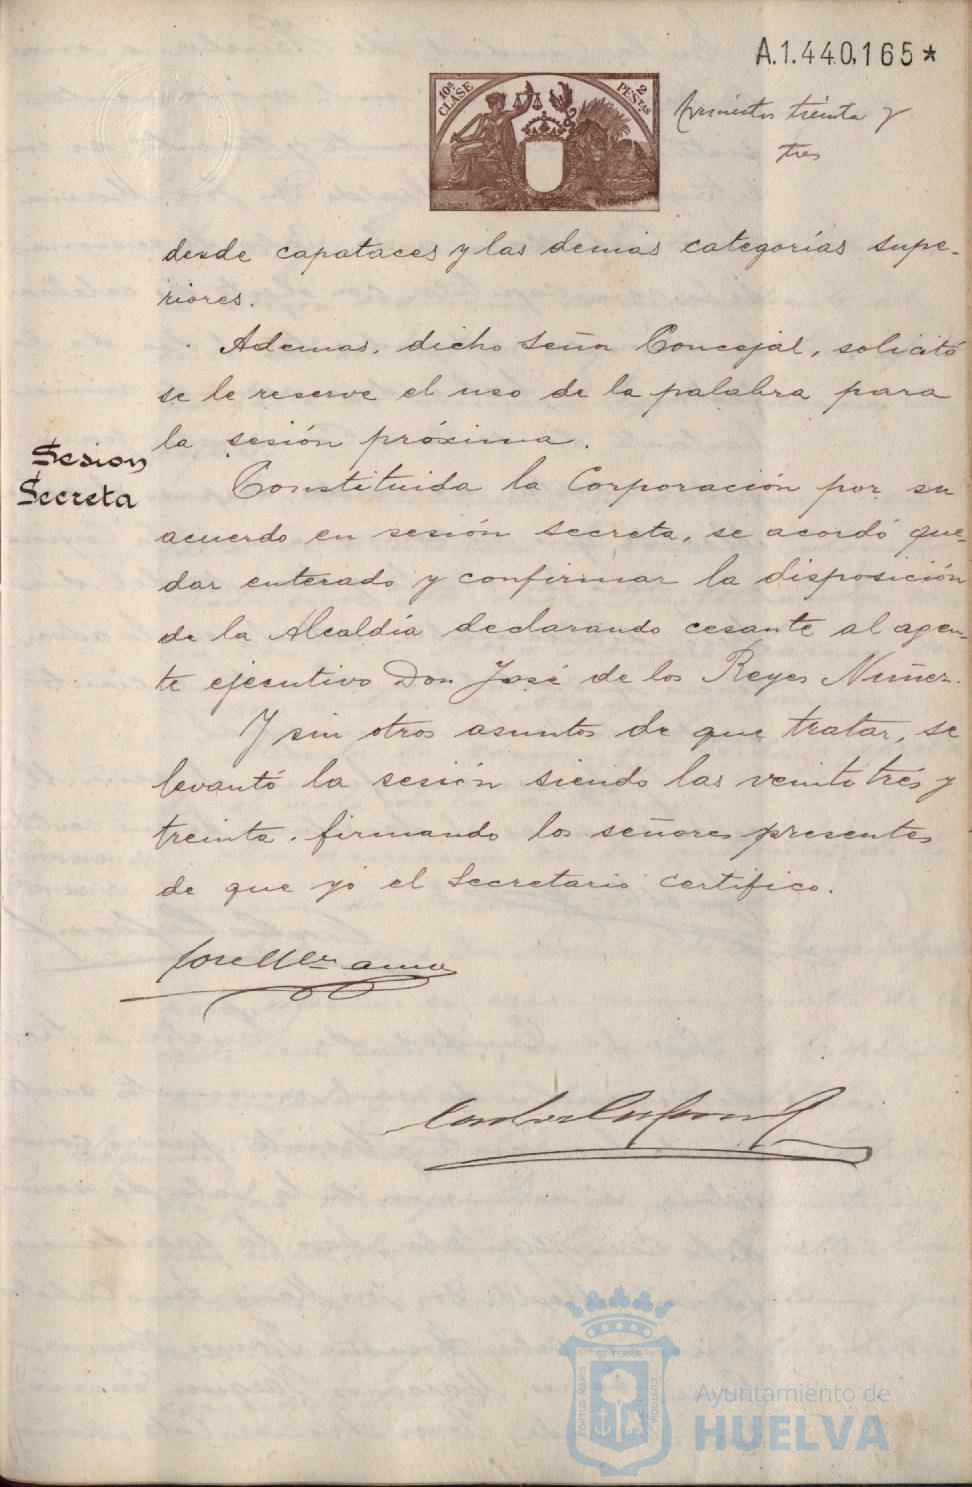 A.1.440,165*
10ª CLASE
2 PESTAS
treinta y
tres
desde capataces y las demás categorías supe-
riores.
Ademas, dicho Señor Concejal, solicitó
se le reserve el uso de la palabra para
la sesión próxima.
Sesion
Secreta
Constituida la Corporación por su
acuerdo en sesión secreta, se acordó que-
dar enterado y confirmar la disposición
de la Alcaldía declarando cesante al agen-
te ejecutivo Don José de los Reyes Nuñez.
Y sin otros asuntos de que tratar, se
levantó la sesión siendo las veintitrés y
treinta, firmando los señores presentes
de que yo el Secretario certifico.
PORTUS MARIS
ET TERRÆ
CUSTODIA
Ayuntamiento de
HUELVA